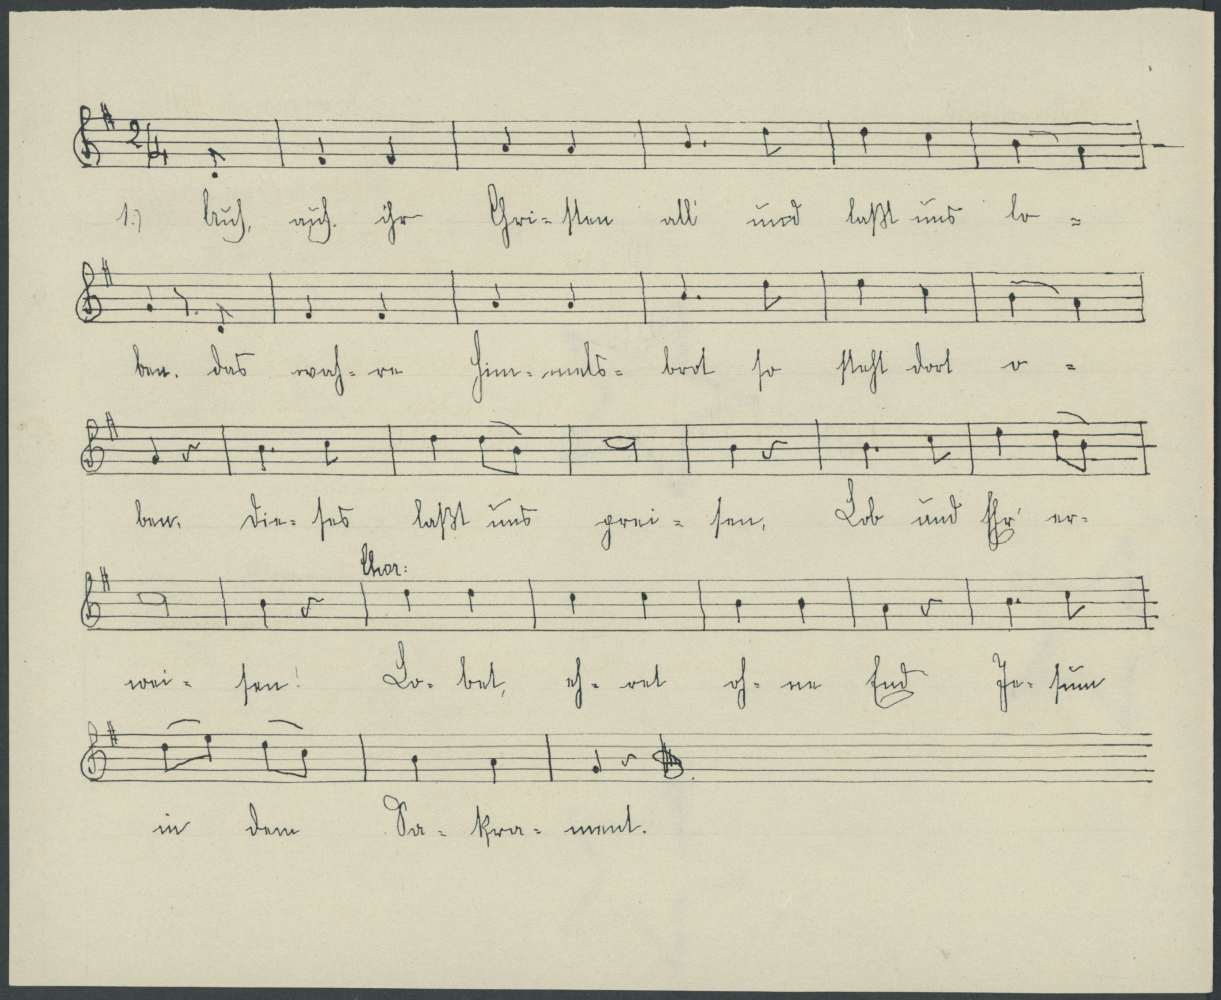 2/4
1.) Auf, auf, ihr Chri=sten all' und laßt uns lo=
ben. das wah=re Him=mels=brot so steht dort o=
ben. die=ses laßt uns prei=sen, Lob und Ehr' er=
Chor:
wei=sen! Lo=bet, eh=ret oh=ne End Je=sum
in dem Sa=kra=ment.